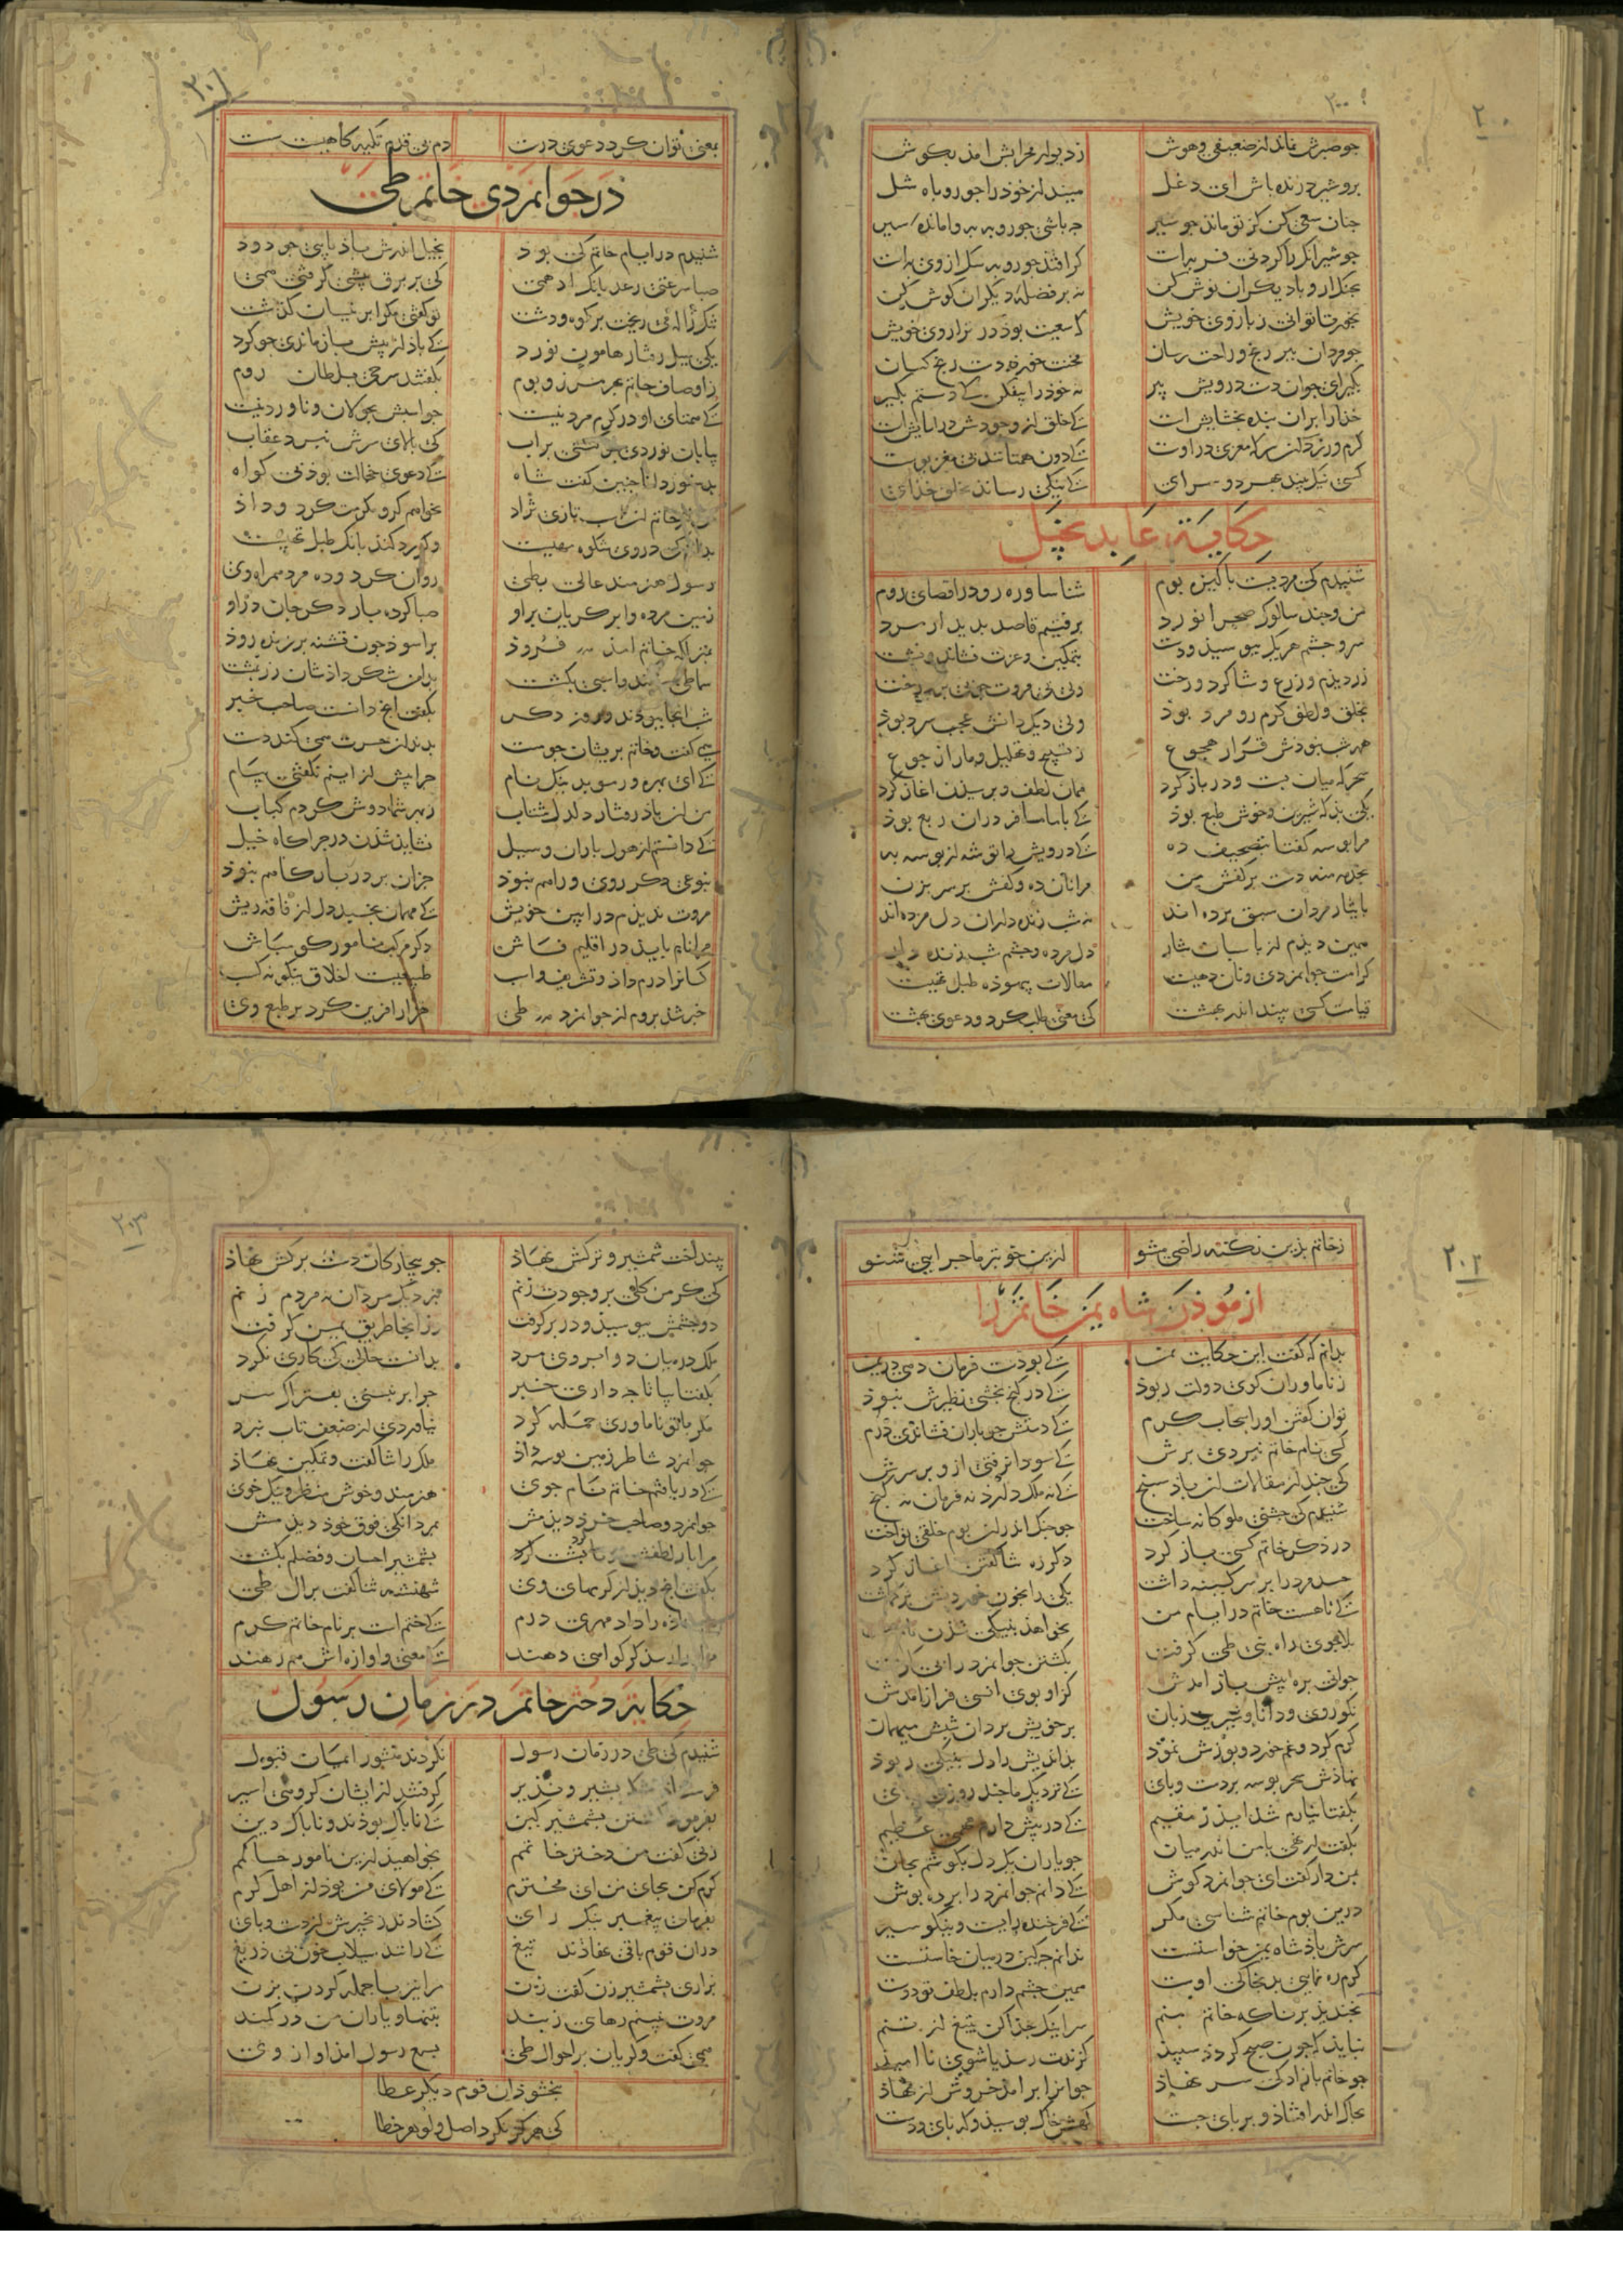 ۲۰۰
۲۰۰
جو صبرش نماند از ضعیفی و هوش ز دیوار محرابش امذ بکوش
برو شیر درنده باش ای دغل مینداز خوذ را جو روباه شل
جنان سعی کن کز تو ماند جو شیر جه باشی جو روبه به وامانده سیر
جو شیر انک را کردنی فربه است کر افتذ جو روبه سک از وی به است
بجنک ار و با دیکران نوش کن نه بر فضلهٔ دیکران کوش کن
بخور تا توانی ز بازوی خویش که سعیت بوذ در ترازوی خویش
جو مردان ببر رنج و راحت رسان مخنث خورد دست رنج کسان
بکیر ای جوان دست درویش پیر نه خوذ را بیفکن کی دستم بکیر
خذا را بران بنده بخشایش است کی خلق از وجوذش در اسایش است
کرم ورزد ان سر که مغزی در اوست کی دون همتانند بی مغز و پوست
کسی نیک بیند بهر دو سرای کی نیکی رساند بخلق خذای
حکایة عابد بخیل
شنیذم کی مردیست باکیزه بوم شناسا و ره رو در اقصای روم
من و جند سالوک صحرا نورد برفتیم قاصد بدیدار مرد
سر و جشم هر یک ببوسیذ و دست بتمکین و عزت نشاند و نشست
زرش دیذم و زرع و شاکرد و رخت ولی بی مروت جو بی بر درخت
بخلق و لطف کرم رو مرد بوذ ولی دیکدانش عجب سرد بوذ
همه شب نبوذش قرار هجوع ز تسبیح و تهلیل و ما را ز جوع
سحرکه میان بست و در باز کرد همان لطف و برسیذن اغاز کرد
یکی بذ که شیرین و خوش طبع بوذ کی با ما مسافر دران ربع بوذ
مرا بوسه کفتا بتصحیف ده کی درویش را توشه از بوسه به
بخدمت منه دست بر کفش من مرا نان ده و کفش بر سر بزن
بایثار مردان سبق برده اند نه شب زنده داران دل مرده اند
همین دیذم از باسبان تتار دل مرده و جشم شب زنده دار
کرامت جوانمردی و نان دهیست مقالات بیهوذه طبل تهیست
قیامت کسی بینی اندر بهشت کی معنی طلب کرد و دعوی بهشت
۲۰۱
بمعنی توان کرد دعوی درست دم بی قدم تکیه کاهیست سست
در جوانمردی خاتم طی
شنیذم در ایام حاتم کی بوذ بخیل اندرش باذ پایی جو دوذ
صبا سرعتی رعد بانک ادهمی کی بر برق پیشی کرفتی همی
بتک ژاله می ریخت بر کوه و دشت تو کفتی مکر ابر نیسان کذشت
یکی سیل رفتار هامون نورد کی باذ از پیش باز ماندی جو کرد
ز اوصاف حاتم بهر مرز و بوم بکفتند برخی بسلطان روم
کی همتای او در کرم مرد نیست جو اسبش بجولان و ناورد نیست
بیابان نوردی جو کشتی بر اب کی بالای سرش نبرد عقاب
بدستور دانا جنین کفت شاه کی دعوی خجالت بوذ بی کواه
من از حاتم ان اسب تازی نژاد بخواهم کر او مکرمت کرد و داذ
بدانم کی در وی شکوه مهیست و کر رد کند بانک طبل تهیست
رسول هنرمند عالی بطی روان کرد و ده مرد همراه وی
زمین مرده و ابر کریان بر او صبا کرده بار دکر جان در او
بمنزلکه حاتم امذ فروذ براسوذ جون تشنه بر زنده روذ
سماطی بیفکند و اسبی بکشت بدامن شکر داذشان زر بمشت
شب انجا ببوذند و روز دکر بکفت انج دانست صاحب خبر
همی کفت و حاتم بریشان جو مست بدندان ز حسرت همی کند دست
کی ای بهره ور موبد نیک نام جرا پیش از اینم نکفتی پیام
من ان باذ رفتار دلدل شتاب ز بهر شما دوش کردم کباب
کی دانستم از هول باران و سیل نشاید شدن در جراکاه خیل
بنوعی دکر روی و راهم نبوذ جز ان بر در بارکاهم نبوذ
مروت ندیذم در ایین خویش کی مهمان بخسبد دل از فاقه ریش
مرا نام بایذ در اقلیم فاش دکر مرکب نامور کو مباش
کسان را درم داذ و تشریف و اسب طبیعیست اخلاق نیکو نه کسب
خبر شد بروم از جوانمرد طی هزار افرین کرد بر طبع وی
۲۰۲
ز حاتم بذین نکته راضی مشو ازین خوبتر ماجرایی شنو
ازموذن شاه یمن خاتم را
ندانم که کفت این حکایت بمن کی بوذست فرمان دهی در یمن
ز نام اوران کوی دولت ربوذ کی در کنج بخشی نظیرش نبوذ
توان کفتن او را سحاب کرم کی دستش جو باران فشاندی درم
کسی نام حاتم نبردی برش کی سودا نرفتی ازو بر سرش
کی جند از مقالات ان باذ سنج کی نه ملک دارد نه فرمان نه کنج
شنیدم کی جشنی ملوکانه ساخت جو جنک اندران بوم خلقی نواخت
در ذکر حاتم کسی باز کرد دکر ره ثنا کفتن اغاز کرد
حسد مرد را بر سر کینه داشت یکی را بخون خوردنش برکماشت
کی تا هست حاتم در ایام من نخواهذ بنیکی شدن نام من
بلاجوی راه بنی طی کرفت بکشتن جوانمرد را پی کرفت
جوانی بره پیش باز امدش کز او بوی انسی فراز امدش
نکو روی و دانا و شیرین زبان بر خویش برد ان شبش میهمان
کرم کرد و غم خورد و بوزش نموذ بد اندیش را دل بنیکی ربوذ
نهاذش سحر بوسه بر دست و بای کی نزدیک ما جند روزی ببای
بکفتا نیارم شد ایذر مقیم کی در پیش دارم مهمی عظیم
بکفت ار نهی با من اندر میان جو یاران یک دل بکوشم بجان
بمن دار کفت ای جوانمرد کوش کی دانم جوانمرد را برده بوش
درین بوم حاتم شناسی مکر کی فرخنده رایست و نیکو سیر
سرش باذشاه یمن خواستست ندانم جه کین در میان خاستست
کرم ره نمایی بدانجا کی اوست همین جشم دارم بلطف تو دوست
بخندیذ برنا که حاتم منم سر اینک جذا کن بتیغ از تنم
نبایذ که جون صبح کردذ سپیذ کزندت رسذ یا شوی نا امیذ
جو حاتم بازادکی سر نهاذ جوان را برامذ خروش از نهاذ
بخاک اندر افتاذ و بر بای جست کهش خاک بوسیذ و که بای و دست
۲۰۳
بینداخت شمشیر و ترکش نهاذ جو بیجارکان دست بر کش نهاذ
کی کر من کلی بر وجودت زنم بنزدیک مردان نه مردم زنم
دو جشمش ببوسیذ و در بر کرفت وز انجا طریق یمن بر کرفت
ملک در میان دو ابروی مرد بدانست حالی کی کاری نکرد
بکفتا بیا تا جه داری خبر جرا بر نبستی بفتراک سر
مکر بر تو نام اوری حمله کرد نیاوردی از ضعف تاب نبرد
جوانمرد شاطر زمین بوسه داذ ملک را ثنا کفت و تمکین نهاذ
کی دریافتم حاتم نام جوی هنرمند و خوش منظر و نیک خوی
جوانمرد و صاحب خرد دیذمش بمردانکی فوق خوذ دیذمش
مرا بار لطفش دو تا کرد بشت بشمشیر احسان و فضلم بکشت
بکفت انج دیذ از کرمهای وی شهنشه ثنا کفت بر ال طی
فرستاده را داد مهری درم کی ختم است بر نام حاتم کرم
مر او را رسد کر کواهی دهند کی معنی و اوازه اش همرهند
حکایة دختر حاتم در زمان رسول
شنیدم کی طی در زمان رسول نکردند منشور ایمان قبول
فرستاد لشکر بشیر و نذیر کرفتند از ایشان کروهی اسیر
بفرمود کشتن بشمشیر کین کی ناباک بوذند و ناباک دین
زنی کفت من دختر حاتمم بخواهیذ ازین نامور حاکمم
کرم کن بجای من ای محترم کی مولای من بوذ از اهل کرم
بفرمان پیغمبر نیک رای کشادند زنجیرش از دست و بای
دران قوم باقی نهاذند تیغ کی رانند سیلاب خون بی دریغ
بزاری بشمشیر زن کفت زن مرا نیز با جمله کردن بزن
مروت نبینم رهای ز بند بتنها و یاران من در کمند
همی کفت و کریان بر احوال طی بسمع رسول امذ اواز وی
بخشوذ ان قوم دیکر عطا
کی هرکز نکرد اصل و کوهر خطا